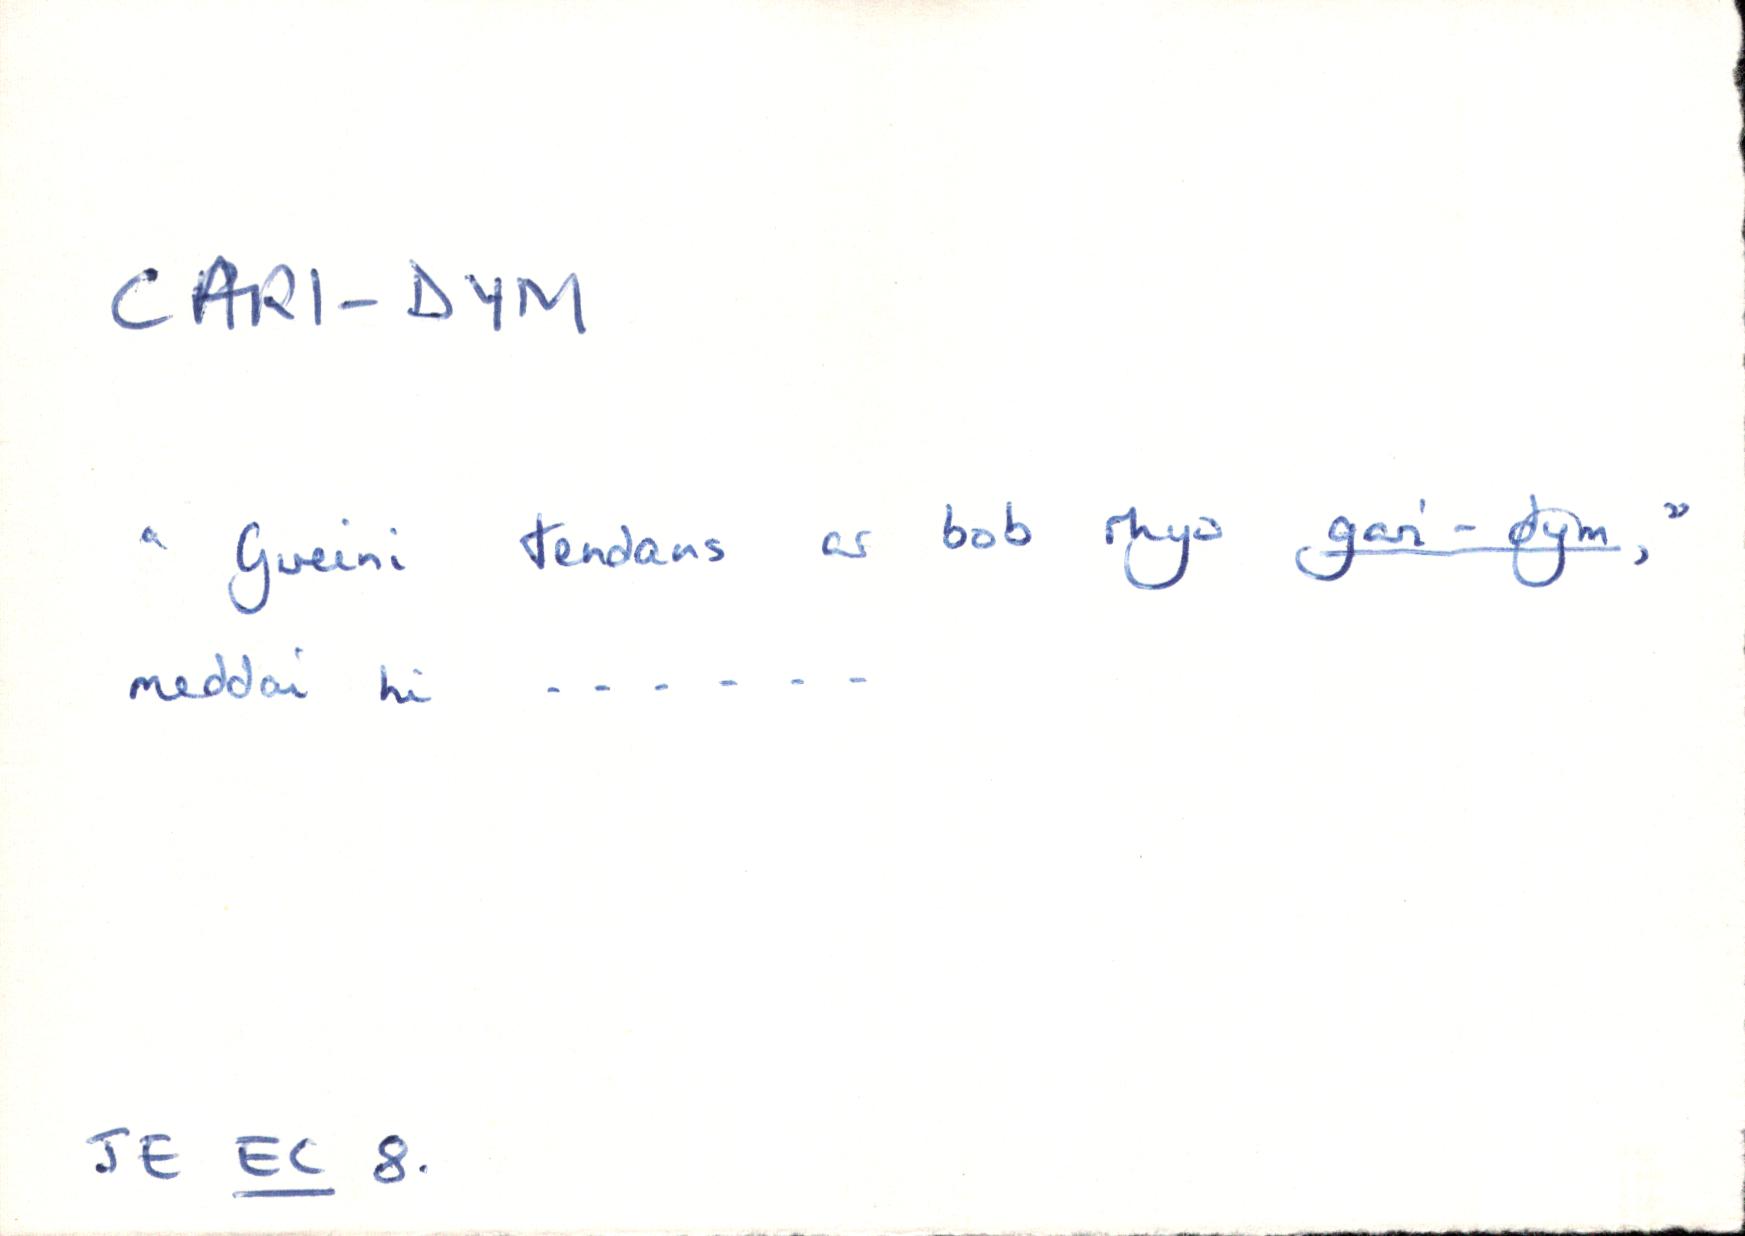 CARI-DYM
"Gweini tendans ar bob rhyw gari-dym,"
meddai hi ------
JE EC 8.